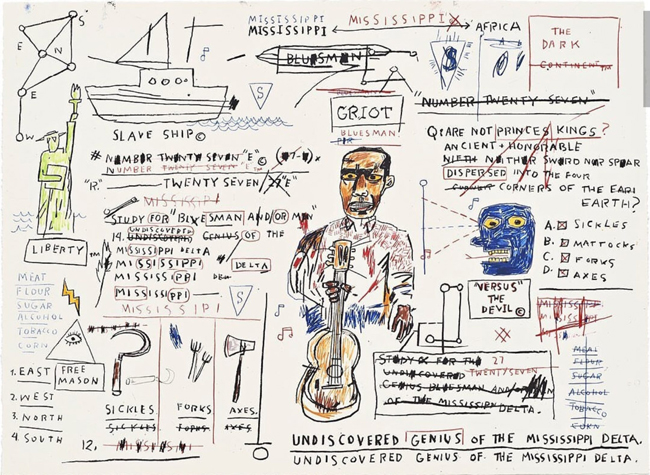 S
N
E
E
W
SLAVE SHIP©
MISSISSIPPI
MISSISSIPPI
MISSISSIPPI
AFRICA
THE
DARK
CONTINENT™
BLUESMAN
S
S
GRIOT
BLUESMAN
"NUMBER TWENTY SEVEN"
Q: ARE NOT PRINCES KINGS?
ANCIENT + HONORABLE
NEITHER SWORD NOR SPEAR
DISPERSED INTO THE FOUR
CORNERS OF THE EARTH
EARTH?
A. SICKLES
B. MATTOCKS
C. FORKS
D. AXES
"VERSUS"
THE
DEVIL©
# NUMBER TWENTY SEVEN "E"© (#7-4)
NUMBER TWENTY SEVEN "E"
"R."
TWENTY SEVEN "E"
MISSISSIPI
STUDY FOR "BLUESMAN AND/OR MEN"
UNDISCOVERED
14. UNDISCOVERED GENIUS OF THE
MISSISSIPPI DELTA
MISSISSIPPI
DELTA
MISSISSIPPI
MISSISSIPPI
S
MISSISSIPI
LIBERTY™
MEAT
FLOUR
SUGAR
ALCOHOL
TOBACCO
CORN
1. EAST
2. WEST
3. NORTH
4. SOUTH
FREE
MASON
SICKLES
SICKLES
FORKS
FORKS
AXES.
AXES.
12.
STUDY FOR THE 27
UNDISCOVERED TWENTY/SEVEN
GENIUS BLUESMAN AND/OR
OF THE MISSISSIPPI DELTA.
MEAL
FLOUR
SUGAR
ALCOHOL
TOBACCO
CORN
UNDISCOVERED GENIUS OF THE MISSISSIPPI DELTA.
UNDISCOVERED GENIUS OF THE MISSISSIPPI DELTA.